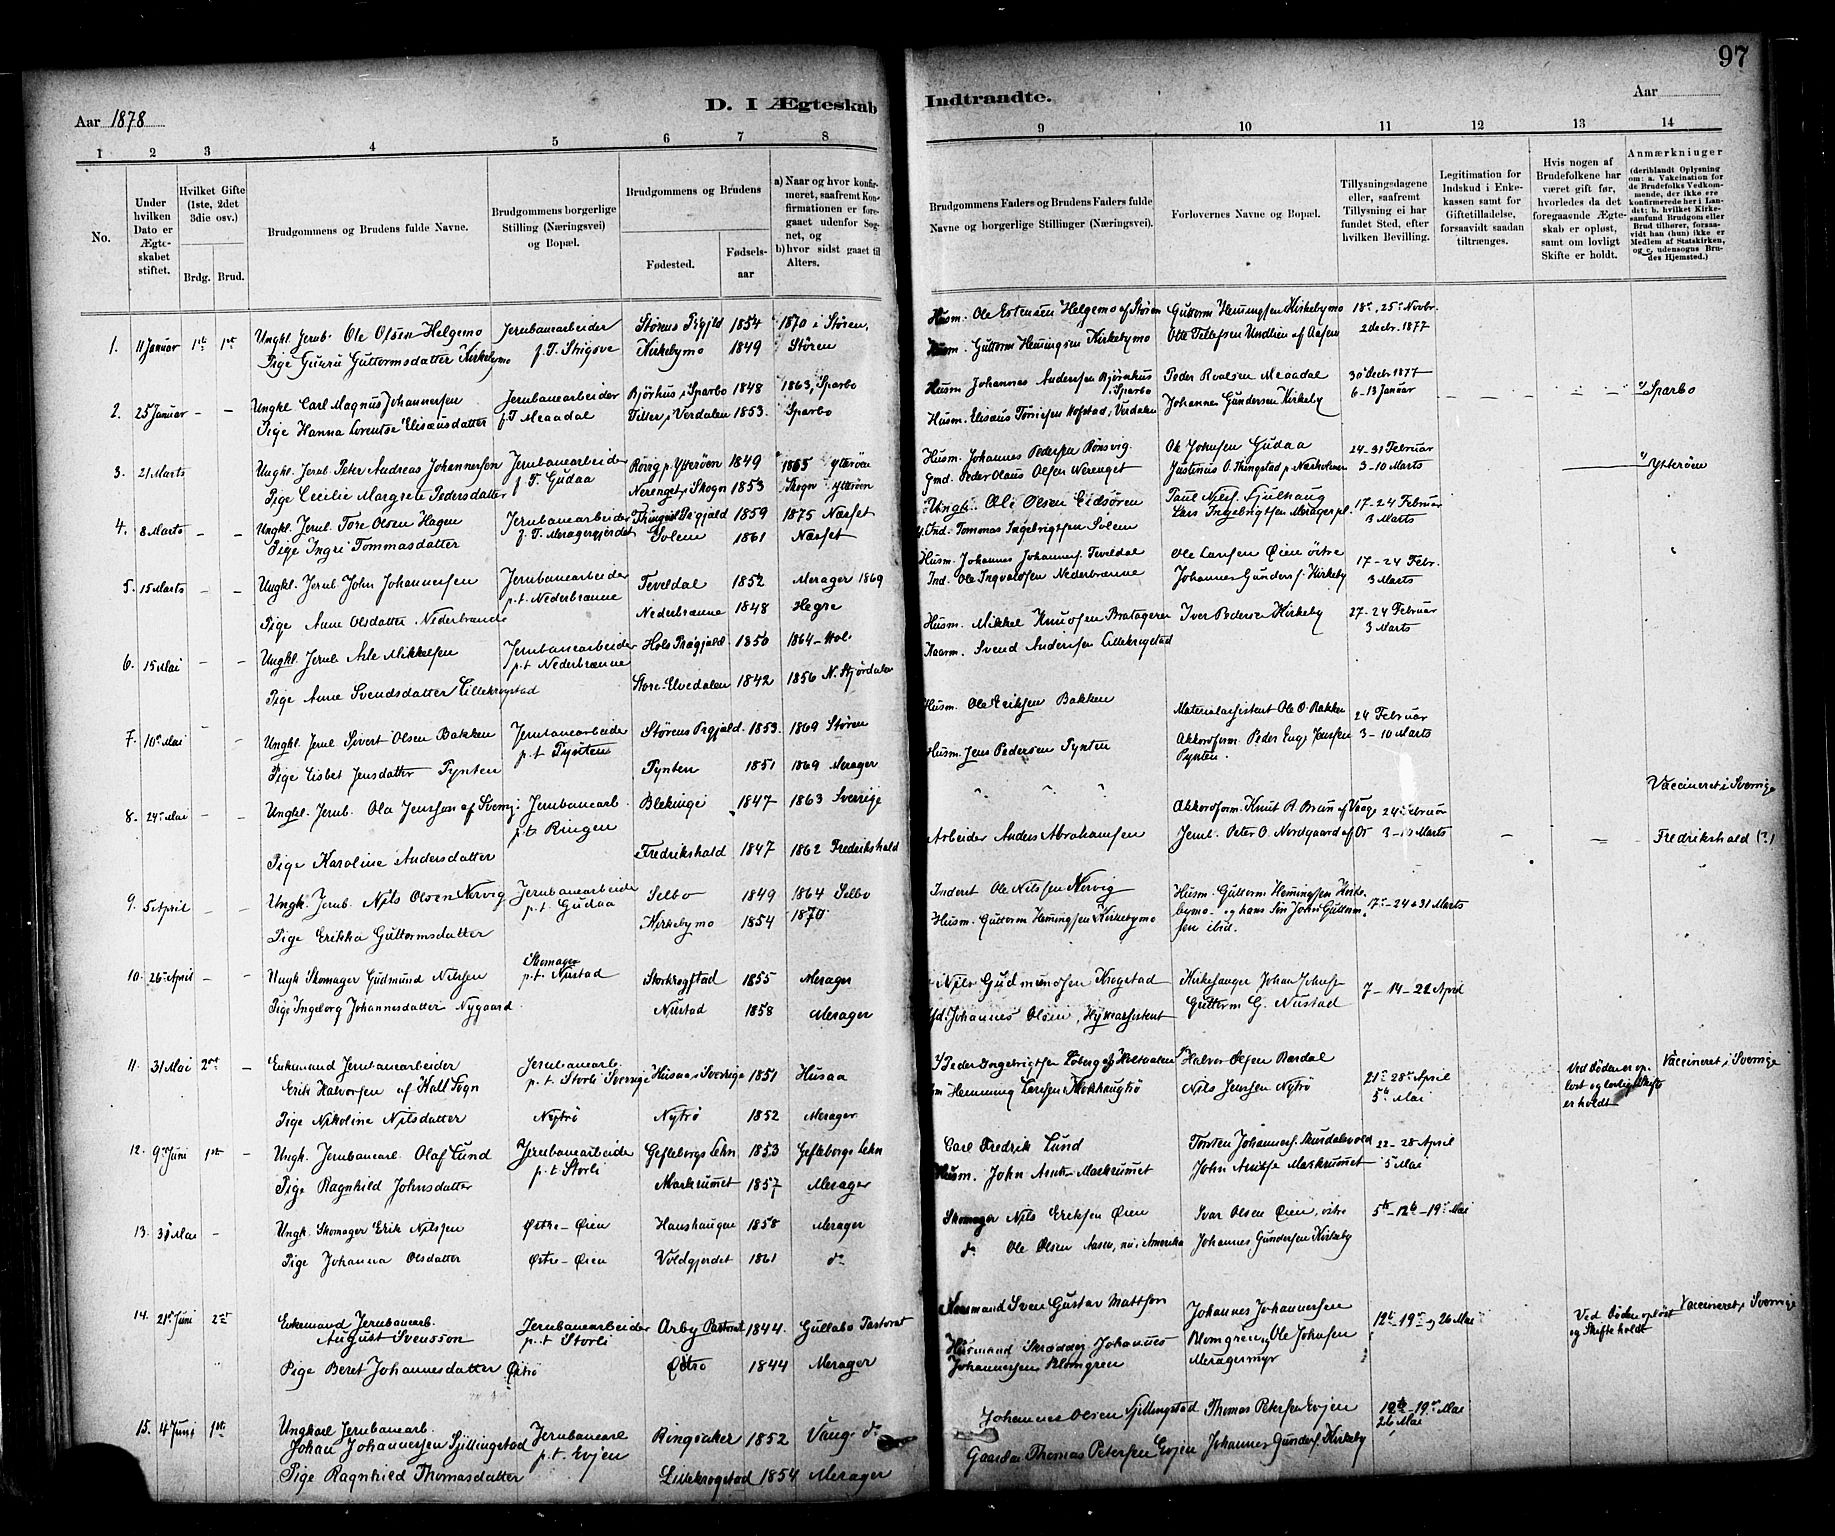 97
D. I Ægteskab Indtraadte.
Aar 1878
Aar
1 2 3 4 5 6 7 8 9 10 11 12 13 14
No.
Under hvilken Dato er Ægteskabet stiftet.
Hvilket Gifte (1ste, 2det 3die osv.)
Brdg. Brud.
Brudgommens og Brudens fulde Navne.
Brudgommens borgerlige Stilling (Næringsvei) og Bopæl.
Brudgommens og Brudens
Fødested.
Fødsels-aar
a) Naar og hvor konfirmeret, saafremt Konfirmationen er foregaaet udenfor Sognet, og
b) hvor sidst gaaet til Alters.
Brudgommens Faders og Brudens Faders fulde Navne og borgerlige Stillinger (Næringsvei).
Forlovernes Navne og Bopæl.
Tillysningsdagene eller, saafremt Tillysning ei har fundet Sted, efter hvilken Bevilling.
Legitimation for Indskud i Enkekassen samt for Giftetilladelse, forsaavidt saadan tiltrænges.
Hvis nogen af Brudefolkene har været gift før, hvorledes da det foregaaende Ægteskab er opløst, samt om lovligt Skifte er holdt.
Anmærkninger (deriblandt Oplysning om: a. Vakcination for de Brudefolks Vedkommende, der ikke ere konfirmerede her i Landet; b. hvilket Kirkesamfund Brudgom eller Brud tilhører, forsaavidt han (hun) ikke er Medlem af Statskirken, og c. udensogns Brudes Hjemsted.)
1. 11 Januar 1ste 1ste Ungkl. Jernb. Ole Olsen Helgemo Jernbanearbeider Størens Prgjld 1854 1870 i Støren, Husm. Ole Estensen Helgemo af Støren Guttorm Hemingsen Kirkebymo 18de, 25de Novbr.
Pige Guuru Guttormsdatter Kirkebymo f. T. Stigsve Kirkebymo 1849 Støren Husm. Guttorm Hemingsen Kirkebymo Ole Tellefsen Undlien af Aasen 2 decbr. 1877
2. 25 Januar - - Ungkl Carl Magnus Johannesen Jernbanearbeider Bjørhus i Sparbo 1848 1863, Sparbo Husm. Johannas Andersen Bjørnhus i Sparbo Peder Roalsen Meaadal 30 decbr. 1877
Pige Hanna Lorentse Elisæusdatter f. T Meaadal Tiller i Verdalen 1853. Sparbo Husm. Elisæus Tøniesen Hofstad, Verdalen Johannes Gundersen Kirkeby 6-13 Januar " Sparbo
3. 21 Marts Ungkl. Jernb. Peter Andreas Johannesen Jernbanearbeider Rønig p. Ytterøen 1849 1865 Ytterøn Husm. Johannes Pedersen Rønsvig. Ole Johnsen Gudaa 24-31 Februar
Pige Cecilie Margrete Pedersdatter f. T. Gudaa Nerenget i Skogn 1853 Skogn Ytterøen Gmd. Peder Olaus Olsen Nerenget Justinus O. Thingstad p. Næsholmen 3-10 Marts " Ytterøen
4. 8 Marts - - Ungkl. Jernb. Tore Olsen Hagen Jernbanearbeider Prgjald 1859 1875 Næsset Ungk. Ole Olsen Eidsøren Paul Nils. Fjulhaug 17-24 Februar
Pige Ingri Tommasdatter f. T. Meragergjerdet Solem 1861 Næsset Ind. Tommas Ingebrigtsen Solem Lars Ingebrigtsen Meragerpl. 3 Marts
5. 15 Marts - - Ungkl. Jernb John Johannesen Jernbanearbeider Teveldal 1852 Merager 1869 Husm. Johannes Johannes. Teveldal Ole Larsen Øien østre 17-24 Febr.
Pige Anne Olsdatter Nederbrænde p.t. Nederbrænne Nederbrænne 1848 Hegre Ind. Ole Ingvaldsen Nederbrænne Johannes Gunders. Kirkeby 3 Marts
6. 15 Mai - - Ungkl. Jernb. Arle Mikkelsen Jernbanearbeider Hols Prægjald 1850 1864 - Hol Husm. Mikkel Knudsen Bratageren Iver Pedersen Kirkeby 27-24 Februar
Pige Anne Svendsdatter Lillekrogstad p.t. Nederbrænne Store-Elvedalen 1842 1856 N. Stjørdalen Svend Andersen Lillekrogstad 3 Marts
7. 10de Mai - Ungkl. Jernb Sivert Olsen Bakken Jernbanearbeider Størens Prgjald. 1853. 1869 Støren Husm. Ole Eriksen Bakken Materialassistent Ole O. Bakken 24 Februar
Pige Lisbet Jensdatter Tynten p.t. Tynten Tynten 1851 1869 Merager Husm. Jens Pedersen Tynten Akkordform. Peder Eug. Jenssen Pynten. 3-10 Marts
8. 24de Mai - - Ungkl. Jernb. Ola Jensson af Sverig: Jernbanearb. Blekinge 1847 1863 Sverrige " " " Akkordform. Knut R. Bruun af Vaage 24 Februar Vaccineret i Sverrige
Pige Karoline Andersdatter p.t. Ringen Fredrikshald 1847 1862 Fredrikshald Arbeider Anders Abrahamsen Jernb. Peter O. Nordgaard af Os 3-10 Marts - = Fredrikshald (?)
9. 5 April - - Ungk. Jernb. Nils Olsen Nervig Jernbanearbeide Selbo 1849 1864 Selbo Inderst Ole Nilssen Nervig Husm. Guttorm Hemingsen Kirkebymo - og hans Søn John Guttormsen ibid. 17de-24 & 31 Marts
Pige Erikka Guttormsdatter p.t. Gudaa Kirkebymo 1854 1870 Husm. Guttorm Hemingsen Kirkebymo
10. 26 April - - Ungk Skomager Gudmund Nilssen Skomager p.t. Nustad Storkrogstad 1855 Merager Nils Gudmundsen Krogstad Kirkesanger Johan Schufs 7-14-22 April
Pige Ingeborg Johannesdatter Nygaard Nustad 1858 Merager Johannes Olsen, Guttorm G. Nustad
11. 31 Mai 2det - Enkemand Jernbanearbeider Jernbanearb. Husaa i Sverrige 1851 Husaa Peder Ingebrigtsen Loberg af Holtaalen Halvor Olsen Bardal 21de 28de April Ved Døden er opløst og lovligt Skifte er holdt Vaccineret i Sverrige
Erik Halvorsen af Hall Sogn p.t. Storli Sverrige
Pige Nikoline Nilsdatter Nytrø Nytrø 1852 Merager Hemming Larssen Nils Jenssen Nytrø 5te Mai
12. 9de Juni 1ste - Ungk. Jernbanearb. Olaf Lund Jernbanearbeide Gefleborgs Lehn 1853 Gefleborgs Lehn Carl Fredrik Lund Torsten Johannes. Skurdalsvold 22-28 April
Pige Ragnhild Johnsdatter p.t. Storli Markrumet 1857 Merager Husm. John Arnts. Markrumet John Arntse Markrummet 5 Mai
13. 31 Mai - Ungk. Skomager Erik Nilssen Østre-Øien Hanshaugen 1858 Merager Skomager Nils Eriksen Øien Ivar Olsen Øien, østre 5te-12te-19de Mai
Pige Johanna Olsdatter Østre-Øien Voldgjerdet 1861 do do Ole Olsen Aasen, nu i Amerika Johannes Gundersen Kirkeby
14. 21de Juni 2det Enkemand Jernbanearb. August Svensson Jernbanearbeider Arby Pastorat 1844. Gullabo Pastorat Sven Gustav Mattson Johannes Johannessen 12te 19de og 26 Mai Ved Døden opløst og Skifte holdt Vaccineret i Sverrige
Pige Beret Johannesdatter Østrø p.t. Storli Østrø 1844 Merager Husmand Skrædder Johannes Johannessen Blomgren Blomgren og Ole Johnsen Meragermyr
15. 4 Juni 1ste Ungkarl Jernbanearb. Johan Johannessen Sjillingstad Jernbanearb Ringsaker 1852 Vang. do Johannes Olsen Sjillingstad Thomas Petersen Evjen 12te-19de Mai
Pige Ragnhild Thomasdatter p.t. Evjen Lillekrogstad 1854 Merager Gaardm. Thomas Petersen Evjen Johannes Gunders. Kirkeby 26 Mai